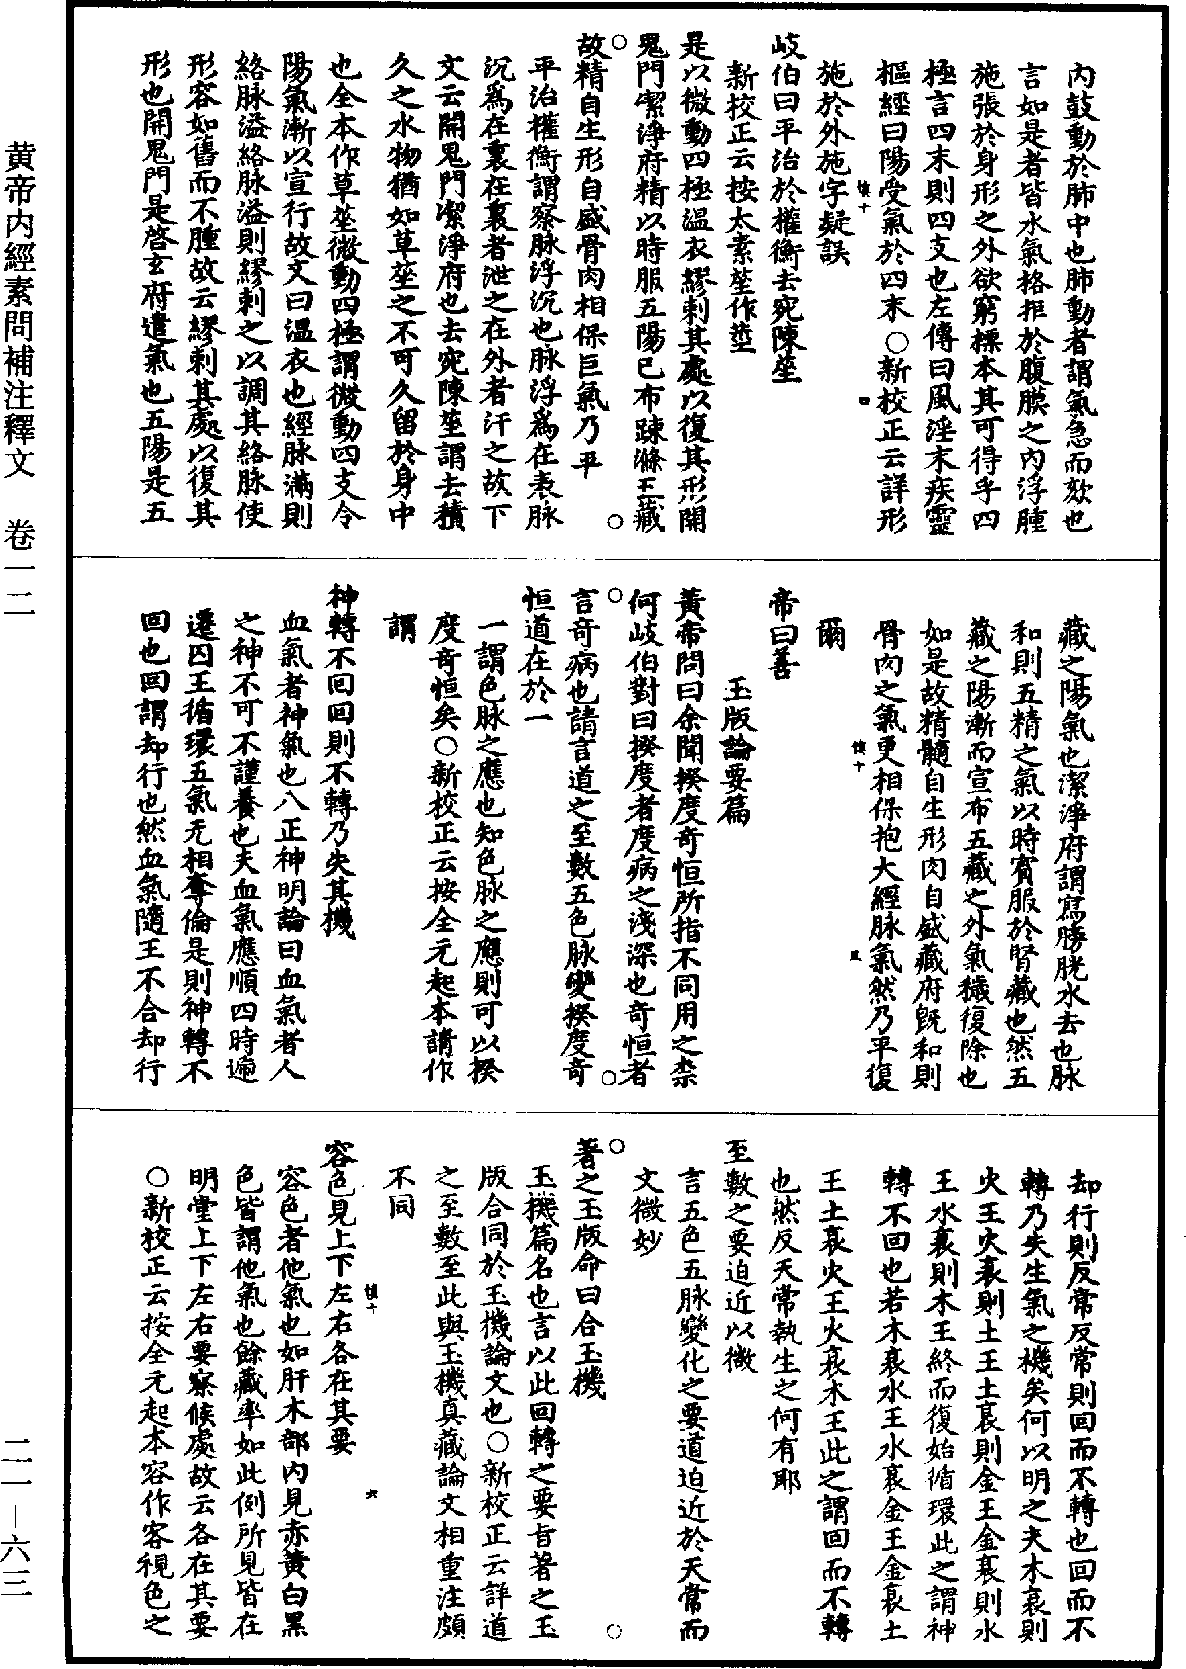 內鼓動於肺中也肺動者謂氣急而欬也
言如是者皆水氣格拒於腹膜之內浮腫
施張於身形之外欲窮標本其可得乎四
極言四末則四支也左傳曰風淫末疾靈
樞經曰陽受氣於四末○新校正云詳形
施於外施字疑誤
岐伯曰平治於權衡去宛陳莝
新校正云按太素莝作莖
是以微動四極溫衣繆刺其處以復其形開
鬼門潔淨府精以時服五陽已布疎滌五藏
故精自生形自盛骨肉相保巨氣乃平
平治權衡謂察脉浮沉也脉浮爲在表脉
沉爲在裏在裏者泄之在外者汗之故下
文云開鬼門潔淨府也去宛陳莝謂去積
久之水物猶如草莝之不可久留於身中
也全本作草莝微動四極謂微動四支令
陽氣漸以宣行故文曰溫衣也經脉滿則
絡脉溢絡脉溢則繆刺之以調其絡脉使
形容如舊而不腫故云繆刺其處以復其
形也開鬼門是啓玄府遣氣也五陽是五
藏之陽氣也潔淨府謂寫膀胱水去也脉
和則五精之氣以時賓服於腎藏也然五
藏之陽漸而宣布五藏之外氣穢復除也
如是故精髓自生形肉自盛藏府既和則
骨肉之氣更相保抱大經脉氣然乃平復
爾
帝曰善
玉版論要篇
黃帝問曰余聞揆度奇恒所指不同用之柰
何岐伯對曰揆度者度病之淺深也奇恒者
言奇病也請言道之至數五色脉變揆度奇
恒道在於一
一謂色脉之應也知色脉之應則可以揆
度奇恒矣○新校正云按全元起本請作
謂
神轉不回回則不轉乃失其機
血氣者神氣也八正神明論曰血氣者人
之神不可不謹養也夫血氣應順四時遞
遷囚王循環五氣无相奪倫是則神轉不
回也回謂却行也然血氣隨王不合却行
却行則反常反常則回而不轉也回而不
轉乃失生氣之機矣何以明之夫木衰則
火王火衰則土王土衰則金王金衰則水
王水衰則木王終而復始循環此之謂神
轉不回也若木衰水王水衰金王金衰土
王土衰火王火衰木王此之謂回而不轉
也然反天常執生之何有耶
至數之要迫近以微
言五色五脉變化之要道迫近於天常而
文微妙
著之玉版命曰合玉機
玉機篇名也言以此回轉之要旨著之玉
版合同於玉機論文也○新校正云詳道
之至數至此與玉機真藏論文相重注頗
不同
容色見上下左右各在其要
容色者他氣也如肝木部內見赤黃白黑
色皆謂他氣也餘藏率如此例所見皆在
明堂上下左右要察候處故云各在其要
○新校正云按全元起本容作客視色之
黄帝内經素問補注釋文 卷一二
二一—六三
慎十 四
慎十 五
慎十 六